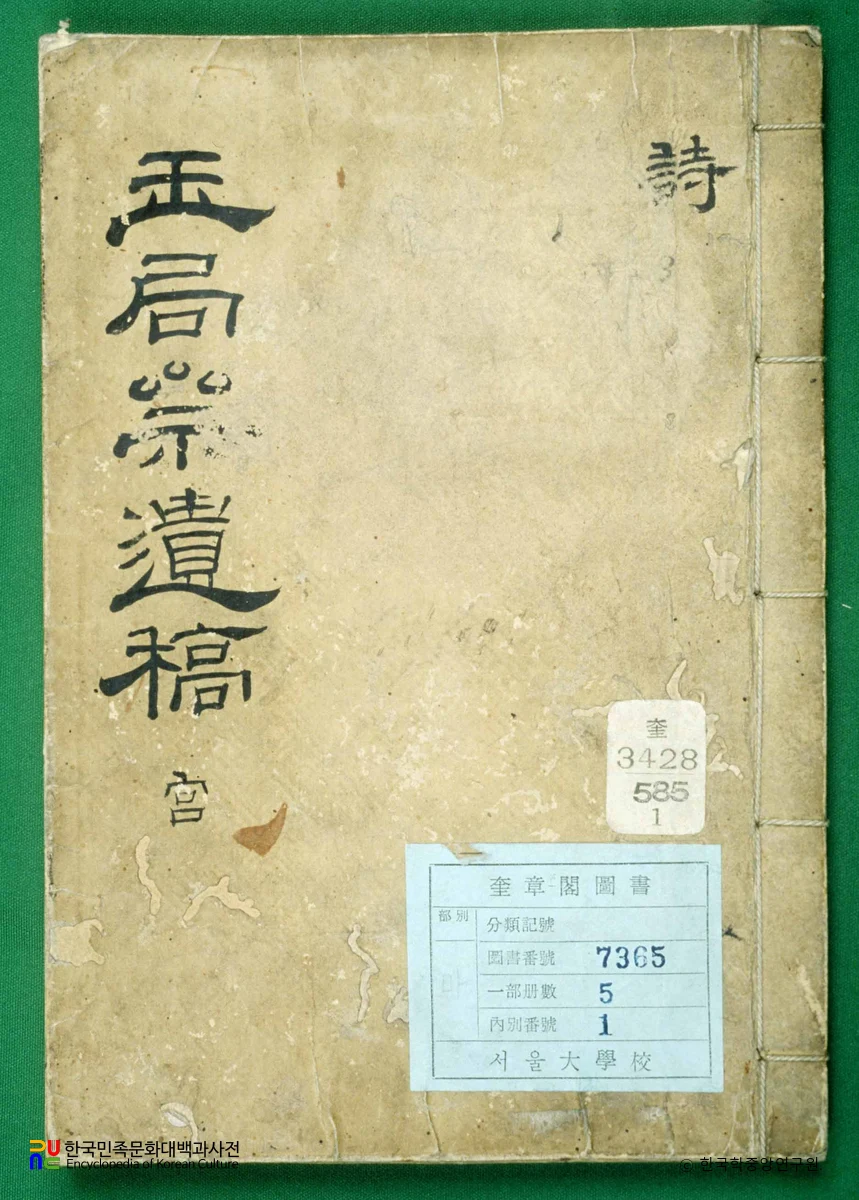 詩
玉局齋遺稿
宮
奎
3428
585
1
奎章閣圖書
部別
分類記號
圖書番號 7365
一部册數 5
內別番號 1
서울大學校
한국민족문화대백과사전
Encyclopedia of Korean Culture
© 한국학중앙연구원